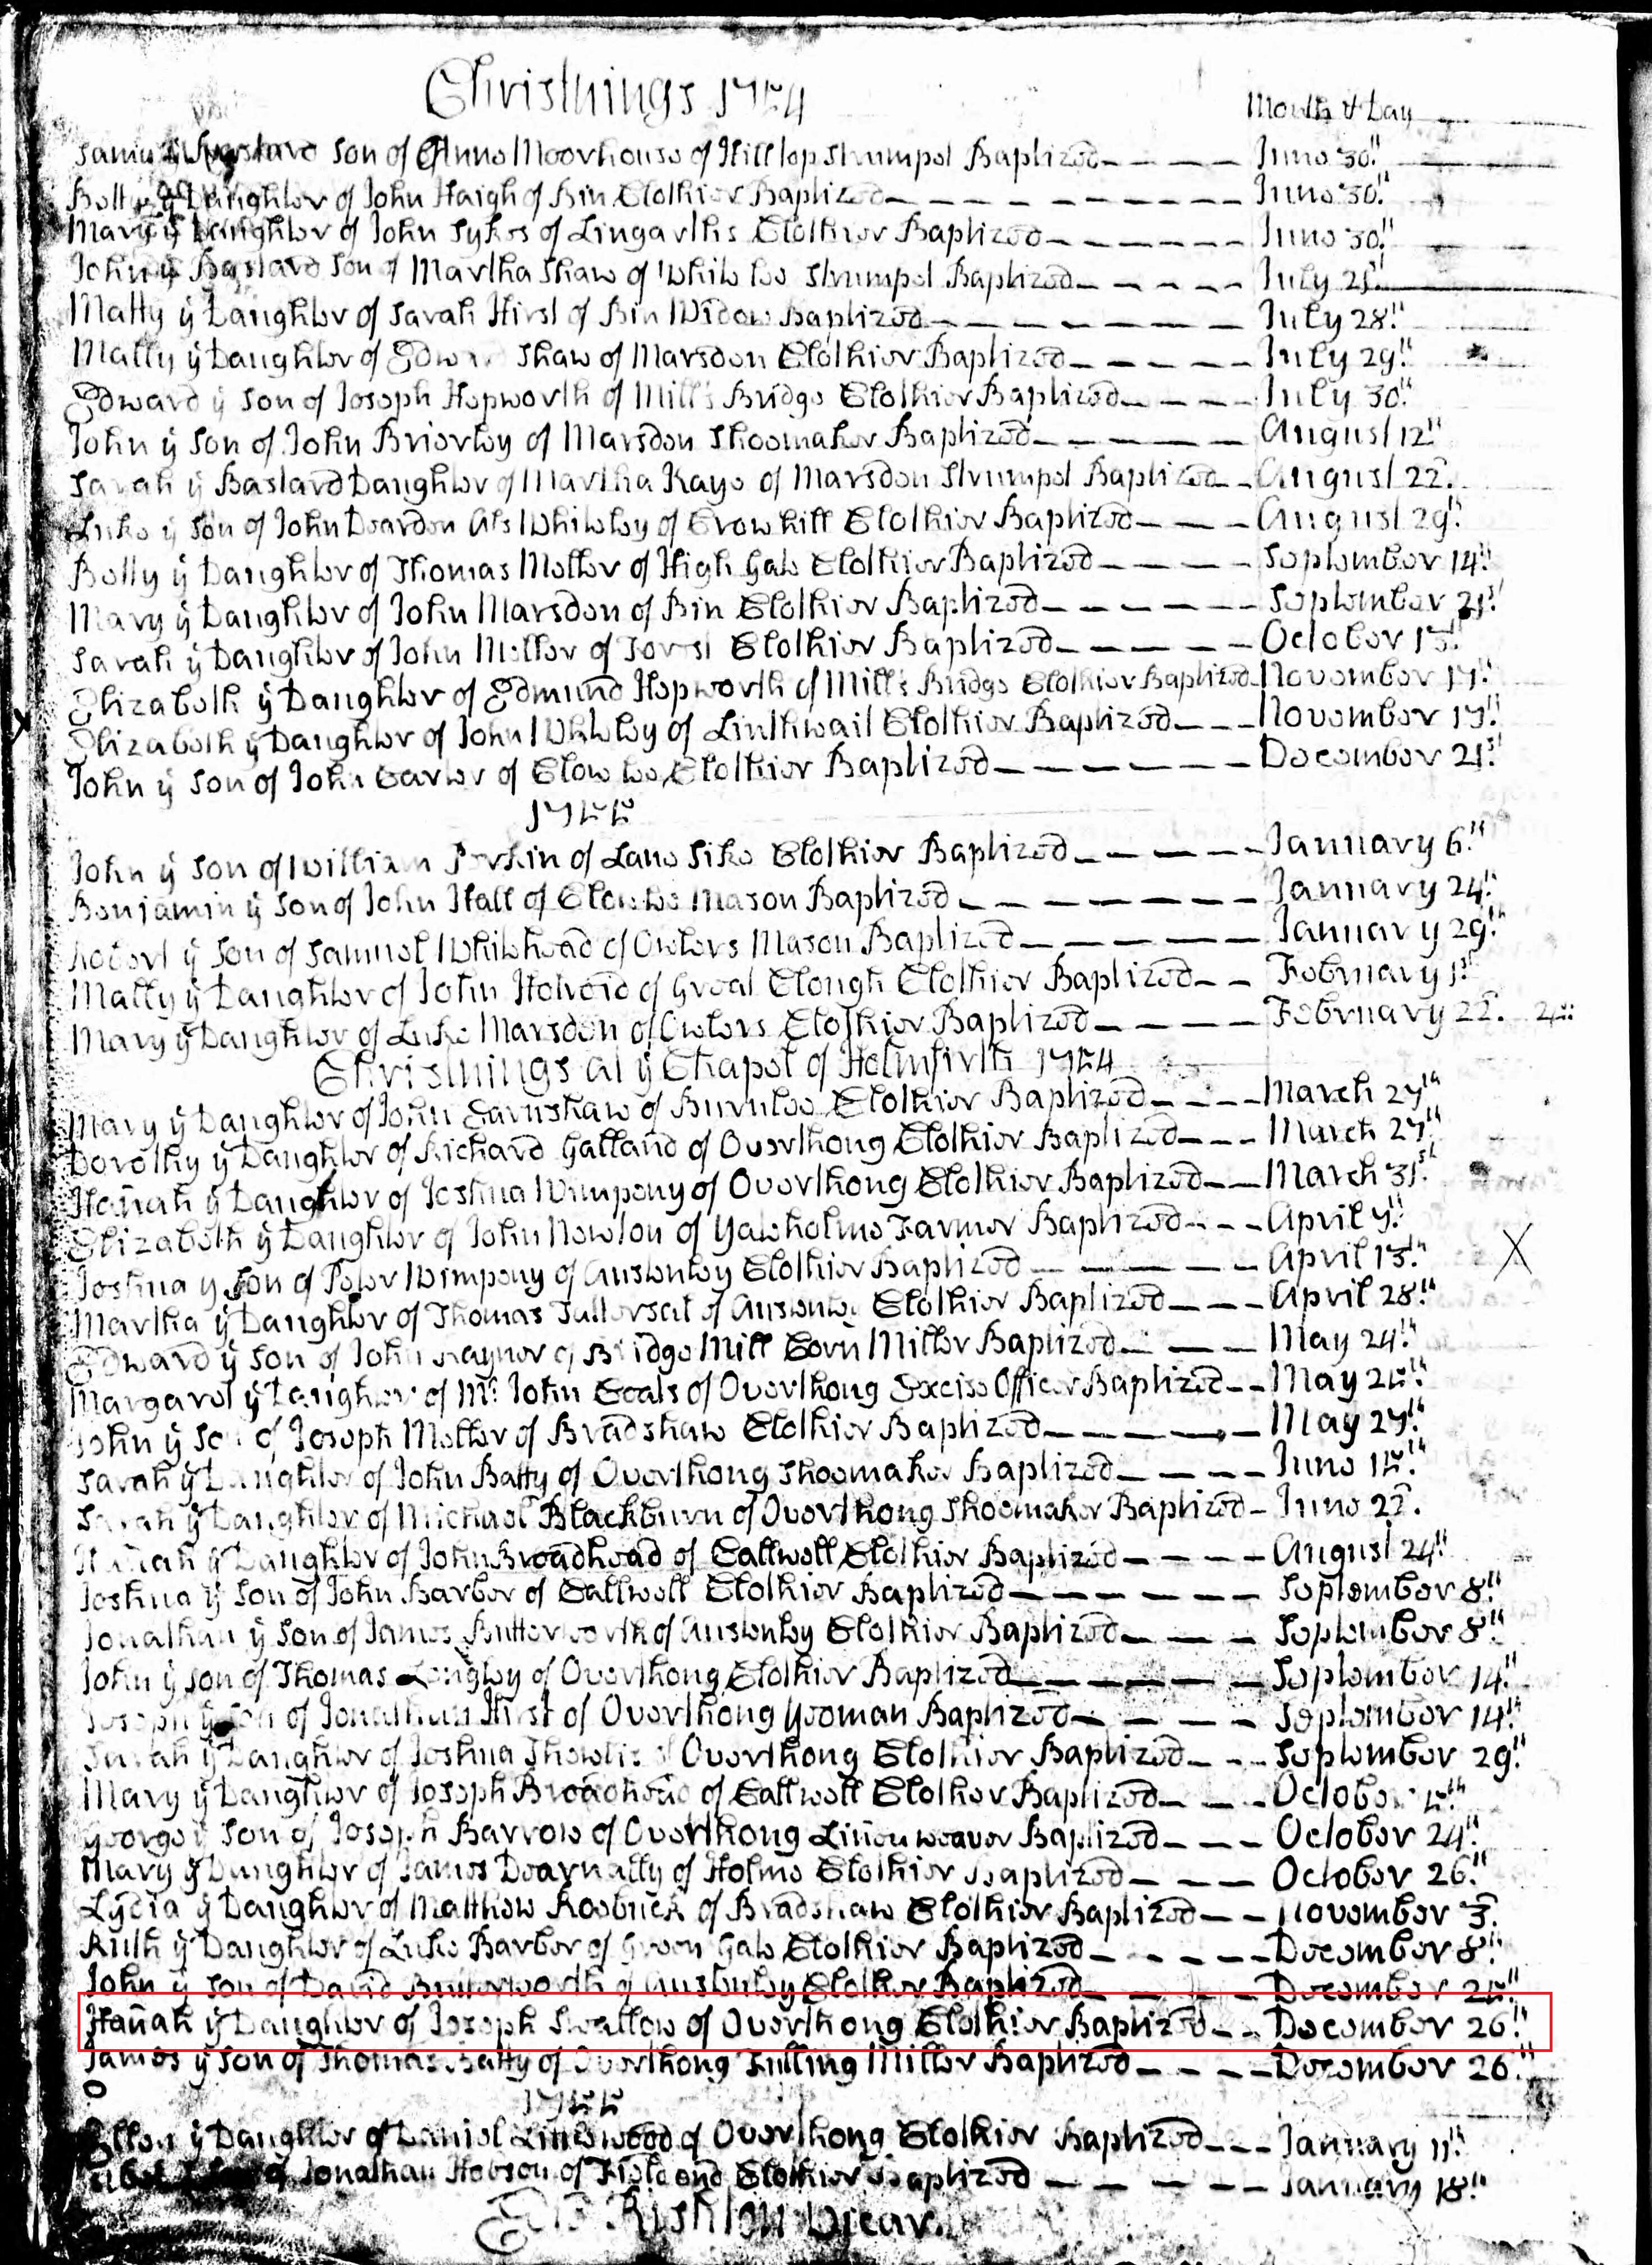 Christnings 1754
Month & Day
Bastard Son of Anne Moorhouse of Hilltop Strumpet Baptized June 30th
Betty ye Daughter of John Haigh of Bin Clothier Baptized June 30th
Mary ye Daughter of John Sykes of Lingarths Clothier Baptized June 30th
John ye Bastard Son of Martha Shaw of White lee Strumpet Baptized July 21st
Matty ye Daughter of Sarah Hirst of Bin Widow Baptized July 28th
Mally ye Daughter of Shaw of Marsden Clothier Baptized July 29th
Edward ye Son of Joseph Hepworth of Mill's Bridge Clothier Baptized July 30th
John ye Son of John Brierley of Marsden Shoemaker Baptized August 12th
Sarah ye Bastard Daughter of Martha Kaye of Marsden Strumpet Baptized August 22d
Luke ye Son of John Dearden als Whiteley of Crowhill Clothier Baptized August 29th
Betty ye Daughter of Thomas Mellor of High Gate Clothier Baptized September 14th
Mary ye Daughter of John Marsden of Bin Clothier Baptized September 21st
Sarah ye Daughter of John Mellor of Clothier Baptized October 13th
Elizabeth ye Daughter of Edmund Hepworth of Mill's Bridge Clothier Baptized November 17th
Elizabeth ye Daughter of John Whiteley of Linthwait Clothier Baptized November 17th
John ye Son of John Carter of Clothier Baptized December 21st
1755
John ye Son of William Perkin of Lane Sike Clothier Baptized January 6th
Benjamin ye Son of John Hall of Mason Baptized January 24th
Robert ye Son of Samuel Whitehead of Owlers Mason Baptized January 29th
Mally ye Daughter of John Holroid of Great Clough Clothier Baptized February 1st
Mary ye Daughter of Luke Marsden of Owlers Clothier Baptized February 22d
Christnings at ye Chapel of Holmfirth 1754
Mary ye Daughter of John Earnshaw of Burnlee Clothier Baptized March 27th
Dorothy ye Daughter of Richard Galland of Overthong Clothier Baptized March 27th
Hañah ye Daughter of Joshua Wimpeny of Overthong Clothier Baptized March 31st
Elizabeth ye Daughter of John Newton of Yateholme Farmer Baptized April 7th
Joshua ye Son of Peter Wimpeny of Austonley Clothier Baptized April 13th X
Martha ye Daughter of Thomas of Austonley Clothier Baptized April 28th
Edward ye Son of John Raynor of Bridge Mill Corn Miller Baptized May 24th
Margaret ye Daughter of Mr. John Coats of Overthong Excise Officer Baptized May 25th
John ye Son of Joseph Mellor of Bradshaw Clothier Baptized May 27th
Sarah ye Daughter of John Batty of Overthong Shoemaker Baptized June 15th
Sarah ye Daughter of Michael Blackburn of Overthong Shoemaker Baptized June 22d
Hañah ye Daughter of John Broadhead of Cattwell Clothier Baptized August 24th
Joshua ye Son of John Barber of Cattwell Clothier Baptized September 8th
Jonathan ye Son of James Butterworth of Austonley Clothier Baptized September 8th
John ye Son of Thomas Longley of Overthong Clothier Baptized September 14th
Joseph ye Son of Jonathan Hirst of Overthong Yeoman Baptized September 14th
Sarah ye Daughter of Joshua Thewlis of Overthong Clothier Baptized September 29th
Mary ye Daughter of Joseph Broadhead of Cattwell Clother Baptized October 5th
George ye Son of Joseph Barrow of Overthong Linen weaver Baptized October 24th
Mary ye Daughter of James Dearnally of Holme Clothier Baptized October 26th
Lydia ye Daughter of Matthew Roebuck of Bradshaw Clothier Baptized November 3d
Ruth ye Daughter of Luke Barber of Green Gate Clothier Baptized December 8th
John ye Son of David Butterworth of Austonley Clother Baptized December 25th
Hañah ye Daughter of Joseph Swallow of Overthong Clothier Baptized December 26th
James ye Son of Thomas Batty of Overthong Fulling Miller Baptized December 26th
1755
Ellen ye Daughter of Daniel of Overthong Clothier Baptized January 11th
of Jonathan Hobson of Field end Clothier Baptized January 18th
Rishton Vicar.